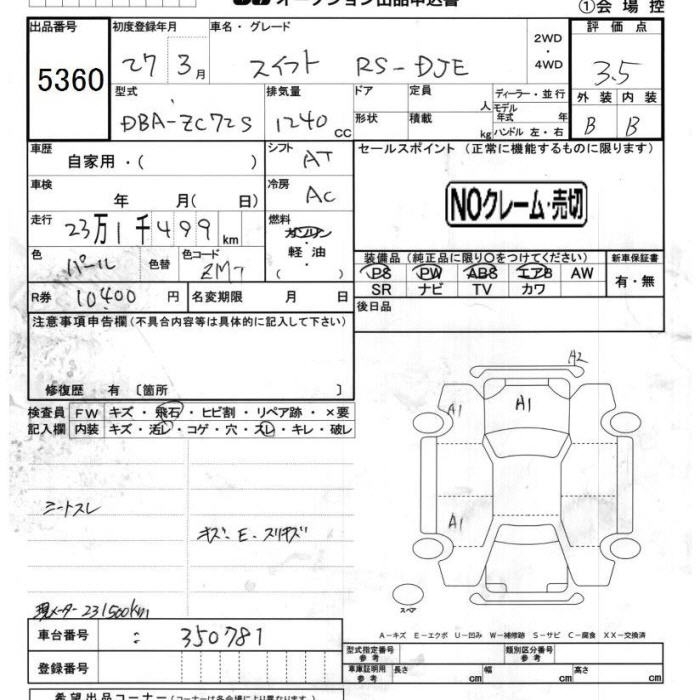 オークション出品申込書
①会場控
出品番号 初度登録年月 車名・グレード 評価点
5360 27 3月 スイフト RS-DJE 2WD・4WD 3.5
型式 排気量 ドア 定員 人 ディーラー・並行 外装 内装
DBA-ZC72S 1240cc 形状 積載 kg モデル年式 年 ハンドル 左・右 B B
車歴 自家用・( ) シフト AT セールスポイント (正常に機能するものに限ります)
車検 年 月( 日) 冷房 AC
NOクレーム・売切
走行 23万1千499km 燃料 ガソリン 軽油 ( )
色 パール 色替 色コード ZM7
装備品 (純正品に限り○をつけてください) 新車保証書
PS PW ABS エアB AW 有・無
SR ナビ TV カワ
R券 10400円 名変期限 月 日
後日品
注意事項申告欄(不具合内容等は具体的に記入して下さい)
修復歴 有 〔箇所 〕
検査員 FW キズ・飛石・ヒビ割・リペア跡・×要
記入欄 内装 キズ・汚レ・コゲ・穴・スレ・キレ・破レ
A2
A1 A1
シートスレ
キズ・E・スリキズ
A1
現メーター231500km
スペア
A-キズ E-エクボ U-凹み W-補修跡 S-サビ C-腐食 XX-交換済
車台番号 : 350781
型式指定番号 参考 類別区分番号 参考
登録番号
車庫証明用 参考 長さ cm 幅 cm 高さ cm
希望出品コーナー (コーナーは各会場により異なります)